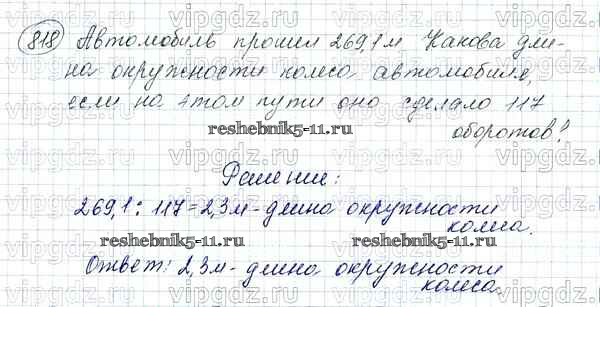 818 Автомобиль прошел 269,1 м. Какова дли-
на окружности колеса автомобиля,
если на этом пути оно сделало 117
reshebnik5-11.ru оборотов?
Решение:
269,1 : 117 = 2,3 м - длина окружности
колеса.
reshebnik5-11.ru
Ответ: 2,3 м - длина окружности
колеса.